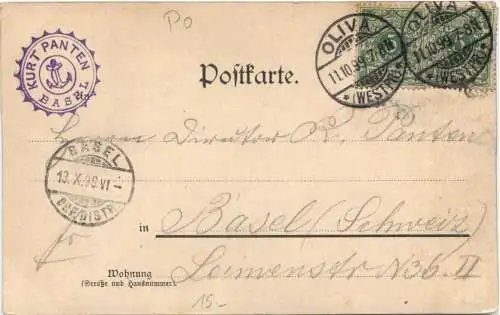 PO
KURT PANTEN
BASEL
OLIVA
11.10.99.7-8N
*(WESTPR)*
OLIVA
11.10.99.7-8N
(WESTPR)*
Postkarte.
Herrn Director K. Panten
BASEL
13.X.99.VI-
BRF.DISTR.
in Basel (Schweiz)
Leimenstr N 36. II
Wohnung
(Straße und Hausnummer).
15.-